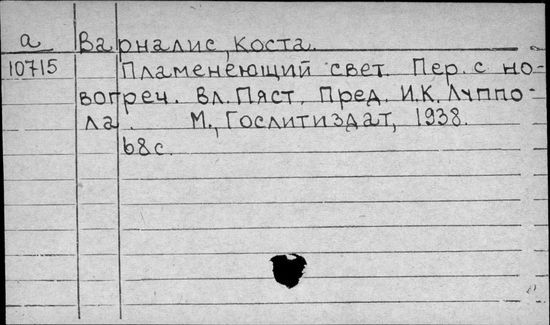 а Варналис, Коста.
10715 Пламенеющий свет. Пер. с но-
вогреч. Вл. Пяст. Пред. И.К. Луппо-
ла. М., Гослитиздат, 1938.
68с.